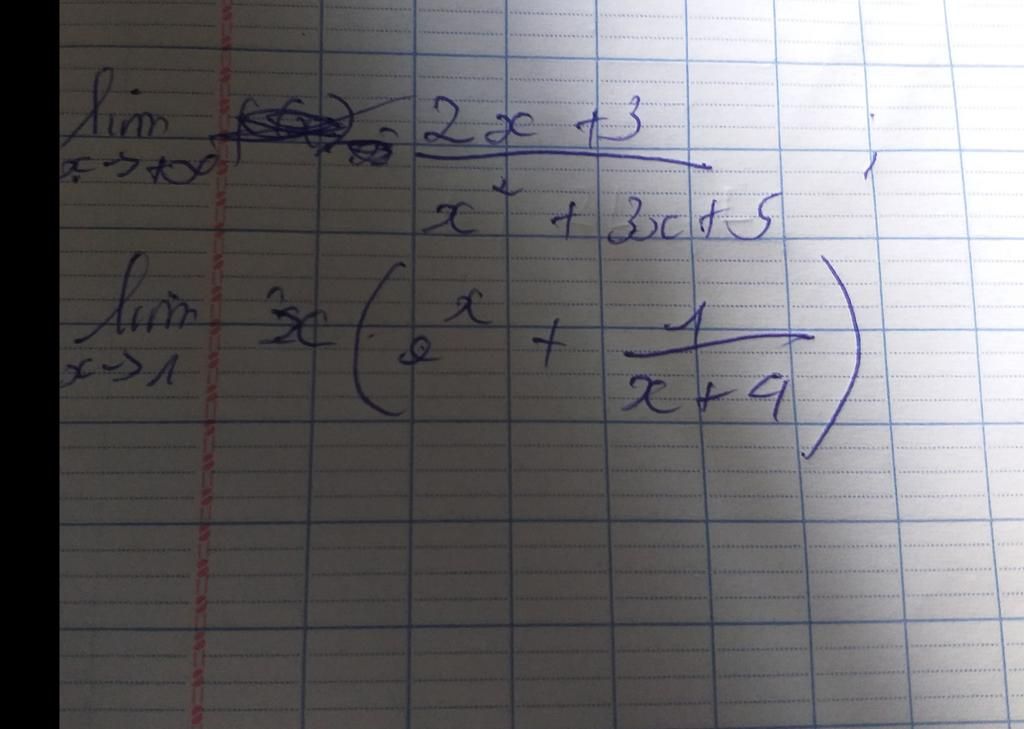 lim x→+∞ (2x + 3)/(x² + 3x + 5) ,
lim x→1 x (e^x + 1/(x + 9))